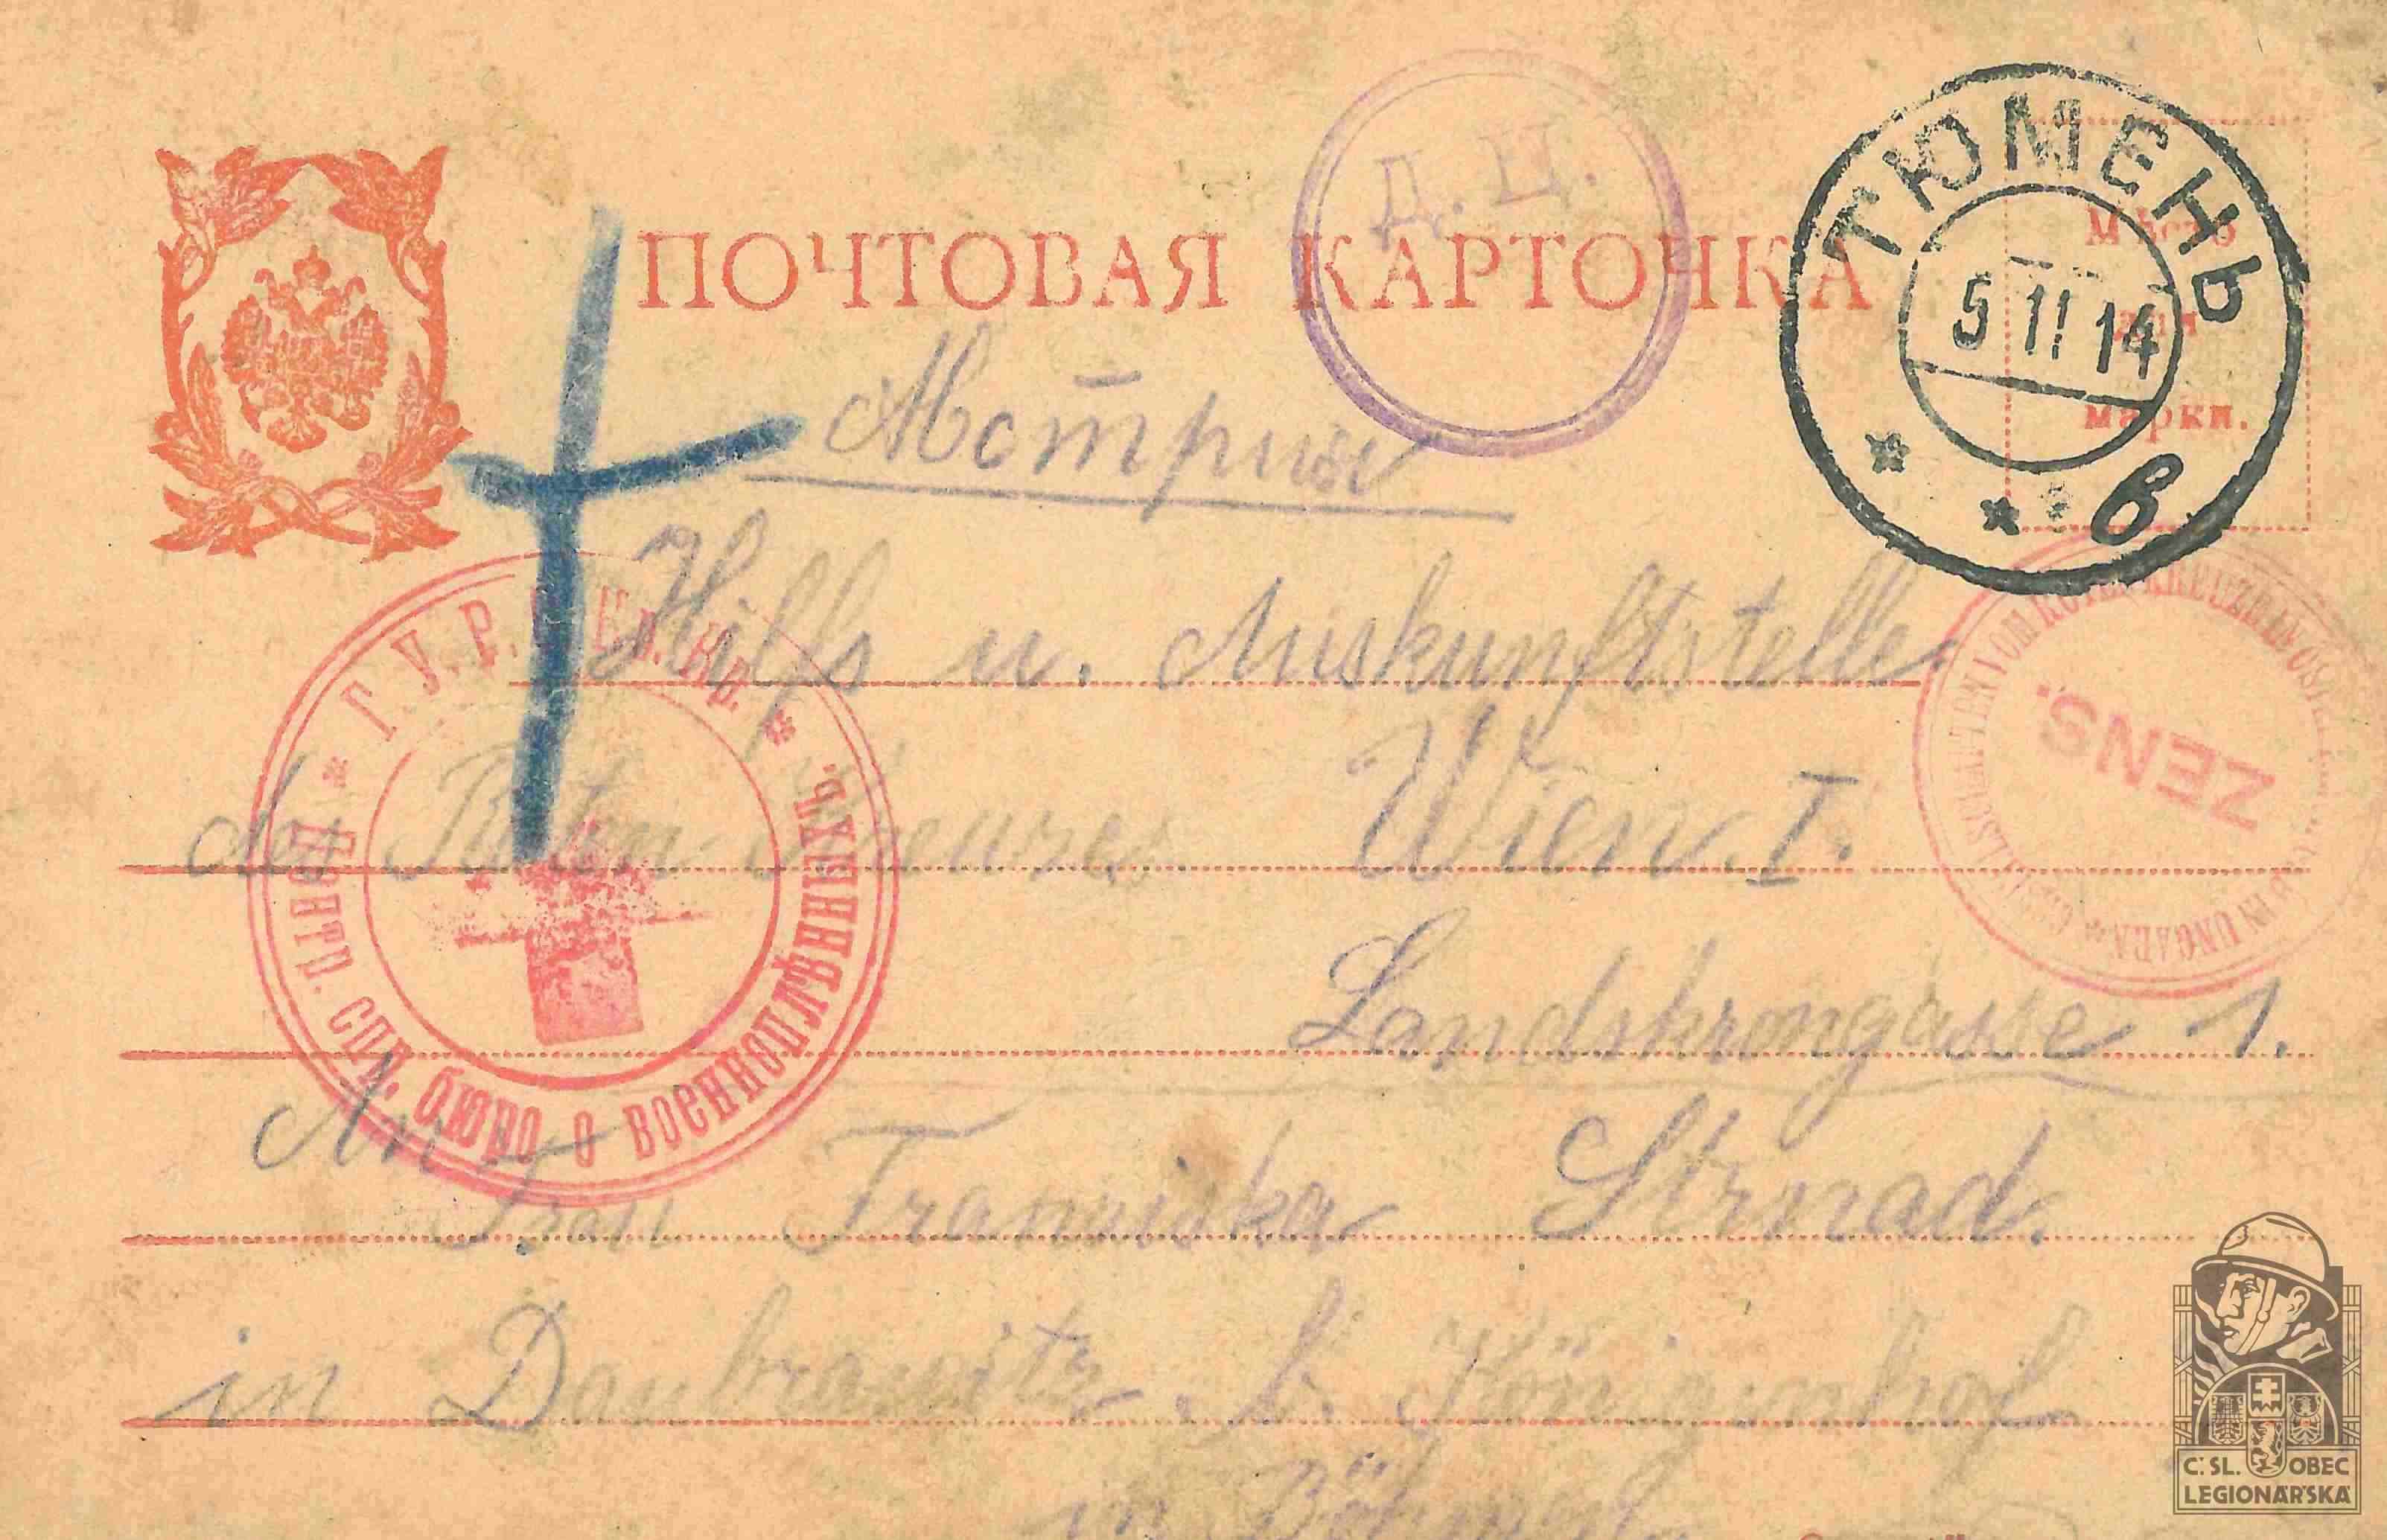 ПОЧТОВАЯ КАРТОЧКА
Мѣсто
для
марки.
Д. Ц.
ТЮМЕНЬ
5 11 14
в
Австрия
Hilfs u. Auskunftstelle
des Roten Kreuzes Wien. I.
Landskrongasse 1.
Г. У. Р. Кр.
Центр. спр. бюро о военноплѣнныхъ.
ZENS.
VOM ROTEN KREUZE IN
IN UNGARN
An
Frau Franziska Strnad.
in Daubrawitz. b. Königinhof
in Böhmen
Č. SL. OBEC
LEGIONÁŘSKÁ